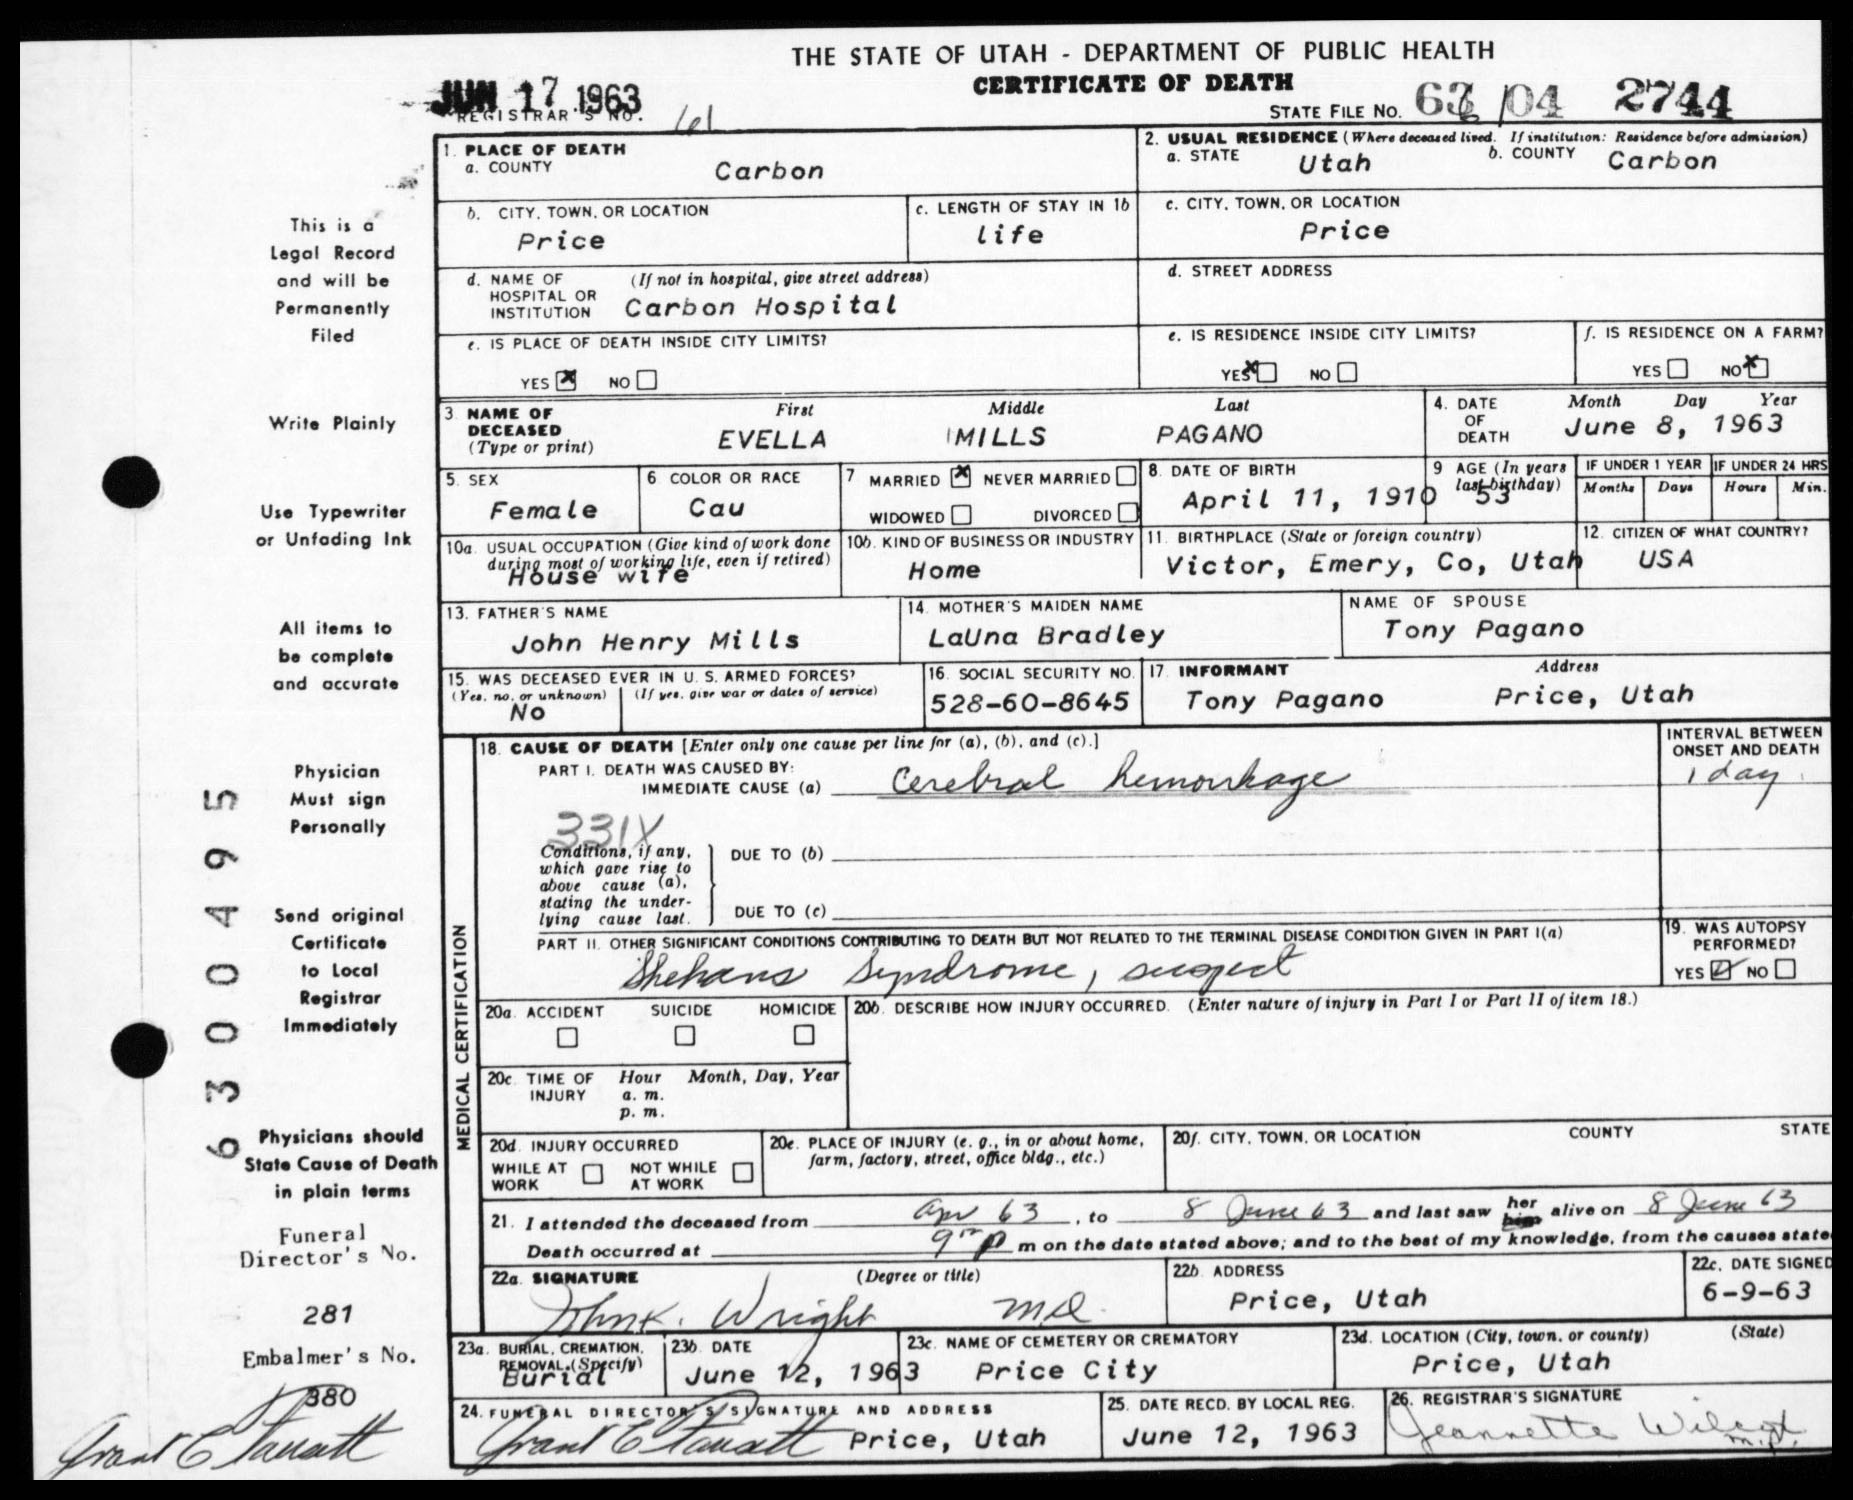 THE STATE OF UTAH - DEPARTMENT OF PUBLIC HEALTH
CERTIFICATE OF DEATH
JUN 17 1963
REGISTRAR'S NO. 161
STATE FILE NO. 63 04 2744
This is a
Legal Record
and will be
Permanently
Filed
Write Plainly
Use Typewriter
or Unfading Ink
All items to
be complete
and accurate
Physician
Must sign
Personally
Send original
Certificate
to Local
Registrar
Immediately
Physicians should
State Cause of Death
in plain terms
Funeral
Director's No.
281
Embalmer's No.
380
6300495
1. PLACE OF DEATH
a. COUNTY Carbon
2. USUAL RESIDENCE (Where deceased lived. If institution: Residence before admission)
a. STATE Utah b. COUNTY Carbon
b. CITY, TOWN, OR LOCATION
Price
c. LENGTH OF STAY IN 1b
life
c. CITY, TOWN, OR LOCATION
Price
d. NAME OF HOSPITAL OR INSTITUTION (If not in hospital, give street address)
Carbon Hospital
d. STREET ADDRESS
e. IS PLACE OF DEATH INSIDE CITY LIMITS?
YES x NO
e. IS RESIDENCE INSIDE CITY LIMITS?
YES x NO
f. IS RESIDENCE ON A FARM?
YES NO x
3. NAME OF DECEASED (Type or print)
First Middle Last
EVELLA MILLS PAGANO
4. DATE OF DEATH Month Day Year
June 8, 1963
5. SEX
Female
6. COLOR OR RACE
Cau
7 MARRIED x NEVER MARRIED
WIDOWED DIVORCED
8. DATE OF BIRTH
April 11, 1910
9 AGE (In years last birthday)
53
IF UNDER 1 YEAR
Months Days
IF UNDER 24 HRS
Hours Min.
10a. USUAL OCCUPATION (Give kind of work done during most of working life, even if retired)
House wife
10b. KIND OF BUSINESS OR INDUSTRY
Home
11. BIRTHPLACE (State or foreign country)
Victor, Emery, Co, Utah
12. CITIZEN OF WHAT COUNTRY?
USA
13. FATHER'S NAME
John Henry Mills
14. MOTHER'S MAIDEN NAME
LaUna Bradley
NAME OF SPOUSE
Tony Pagano
15. WAS DECEASED EVER IN U. S. ARMED FORCES?
(Yes, no, or unknown) (If yes, give war or dates of service)
No
16. SOCIAL SECURITY NO.
528-60-8645
17. INFORMANT Address
Tony Pagano Price, Utah
MEDICAL CERTIFICATION
18. CAUSE OF DEATH [Enter only one cause per line for (a), (b), and (c).]
INTERVAL BETWEEN ONSET AND DEATH
PART I. DEATH WAS CAUSED BY:
IMMEDIATE CAUSE (a) Cerebral hemorrhage
1 day
331X
Conditions, if any,
which gave rise to
above cause (a),
stating the under-
lying cause last.
DUE TO (b)
DUE TO (c)
PART II. OTHER SIGNIFICANT CONDITIONS CONTRIBUTING TO DEATH BUT NOT RELATED TO THE TERMINAL DISEASE CONDITION GIVEN IN PART I(a)
Shehans Syndrome, suspect
19. WAS AUTOPSY PERFORMED?
YES NO
20a. ACCIDENT SUICIDE HOMICIDE
20b. DESCRIBE HOW INJURY OCCURRED. (Enter nature of injury in Part I or Part II of item 18.)
20c. TIME OF INJURY Hour Month, Day, Year
a. m.
p. m.
20d. INJURY OCCURRED
WHILE AT WORK NOT WHILE AT WORK
20e. PLACE OF INJURY (e. g., in or about home, farm, factory, street, office bldg., etc.)
20f. CITY, TOWN, OR LOCATION COUNTY STATE
21. I attended the deceased from Apr 63, to 8 June 63 and last saw her him alive on 8 June 63
Death occurred at 9 p m on the date stated above; and to the best of my knowledge, from the causes state
22a. SIGNATURE (Degree or title)
John K. Wright MD.
22b. ADDRESS
Price, Utah
22c. DATE SIGNED
6-9-63
23a. BURIAL, CREMATION, REMOVAL, (Specify)
Burial
23b. DATE
June 12, 1963
23c. NAME OF CEMETERY OR CREMATORY
Price City
23d. LOCATION (City, town, or county) (State)
Price, Utah
24. FUNERAL DIRECTOR'S SIGNATURE AND ADDRESS
Price, Utah
25. DATE RECD. BY LOCAL REG.
June 12, 1963
26. REGISTRAR'S SIGNATURE
Jeannette